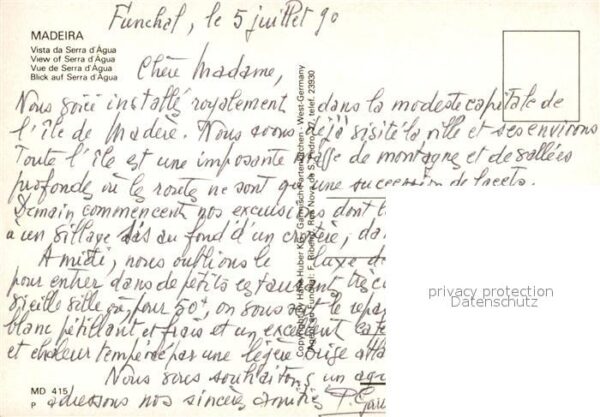 Funchal, le 5 juillet 90
MADEIRA
Vista da Serra d'Água
View of Serra d'Água
Vue de Serra d'Água
Blick auf Serra d'Água
Chère Madame,
Nous voici installés royalement dans la modeste capitale de
l'île de Madère. Nous avons déjà visité la ville et ses environs
Toute l'île est une imposante masse de montagnes et de vallées
profondes où les routes ne sont qu'une succession de lacets.
Demain commencent nos excursions dont l
à un village sis au fond d'un cratère, da
A midi, nous oublions le luxe d
pour entrer dans de petits restaurants très c
vieille ville où pour 50 on vous sert le repas
blanc pétillant et frais et un excellent café
et chaleur tempérée par une légère brise atla
Nous vous souhaitons un agr
adressons nos sincères amitiés
MD 415
P
Copyright by Hans Huber KG, Garmisch-Partenkirchen - West-Germany
F. Ribeiro, Rua Nova de S. Pedro, telef. 23930
privacy protection
Datenschutz